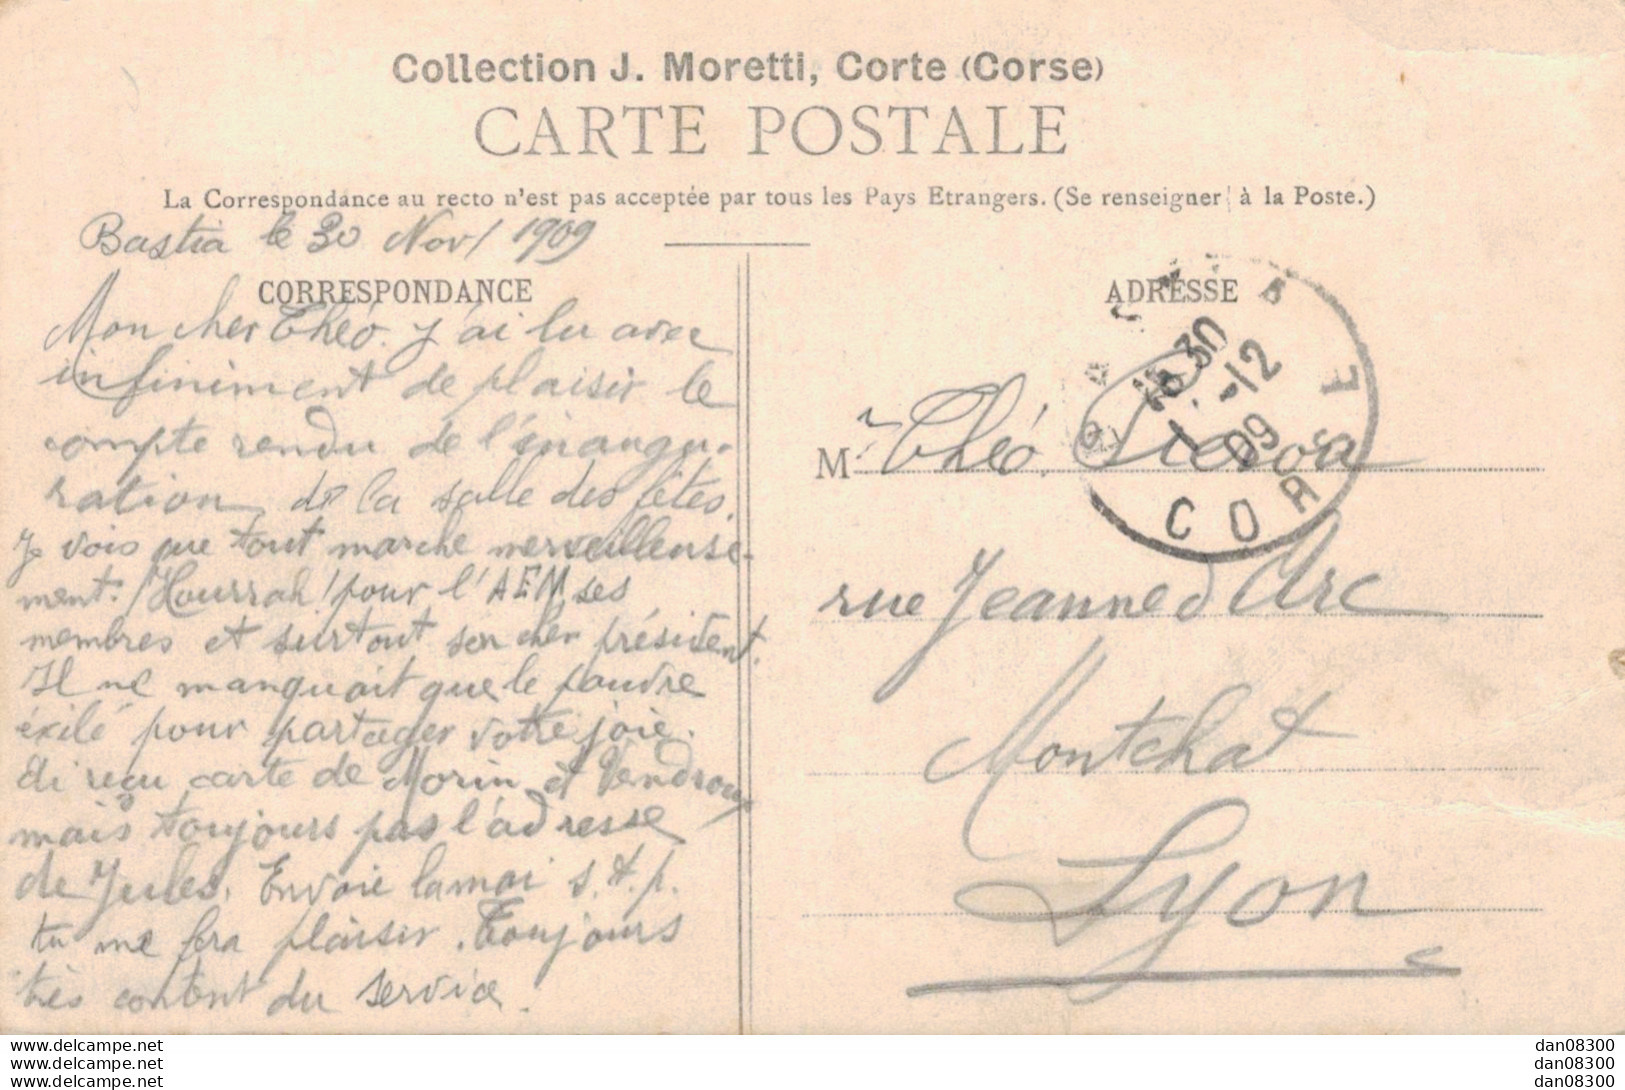 Collection J. Moretti, Corte (Corse)
CARTE POSTALE
La Correspondance au recto n'est pas acceptée par tous les Pays Etrangers. (Se renseigner à la Poste.)
Bastia le 30 Nov/ 1909
CORRESPONDANCE
Mon cher Théo. J'ai lu avec
infiniment de plaisir le
compte rendu de l'inaugu-
ration de la salle des fêtes.
Je vois que tout marche merveilleuse-
ment. Hourrah! pour l'AEM ses
membres et surtout son cher président.
Il ne manquait que le pauvre
éxilé pour partager votre joie.
Ai reçu carte de Morin et Vendroux
mais toujours pas l'adresse
de Jules. Envoie la moi s.t.p.
tu me fera plaisir. Toujours
très content du service.
ADRESSE
BASTIA
15 30
1 -12
09
CORSE
Mr Théo
rue Jeanne d'Arc
Montchat
Lyon
www.delcampe.net
www.delcampe.net
www.delcampe.net
dan08300
dan08300
dan08300